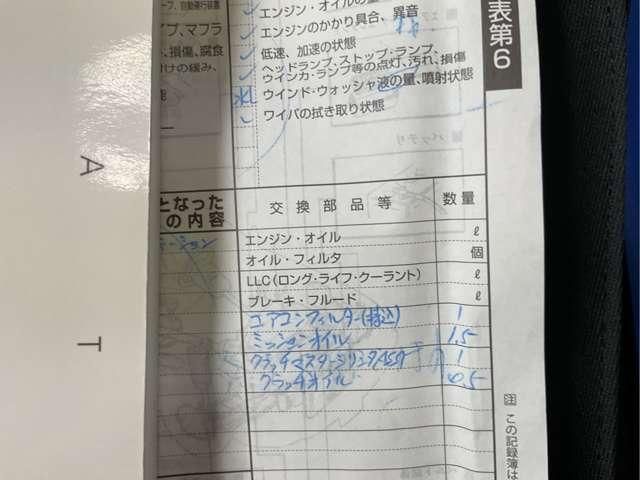 ーフ、自動運行装置
イプ、マフラ
、損傷、腐食
付けの緩み、
能
エンジン・オイルの量
エンジンのかかり具合、異音
低速、加速の状態
ヘッドランプ、ストップ・ランプ、
ウインカ・ランプ等の点灯、汚れ、損傷
ウインド・ウォッシャ液の量、噴射状態
ワイパの拭き取り状態
表第6
となった
の内容
交換部品等 数量
エンジン・オイル ℓ
オイル・フィルタ 個
LLC(ロング・ライフ・クーラント) ℓ
ブレーキ・フルード ℓ
エアコンフィルター(持込) 1
ミッションオイル 1.5
クラッチマスターシリンダASSY 1
クラッチオイル 0.5
注 この記録簿は
A
T